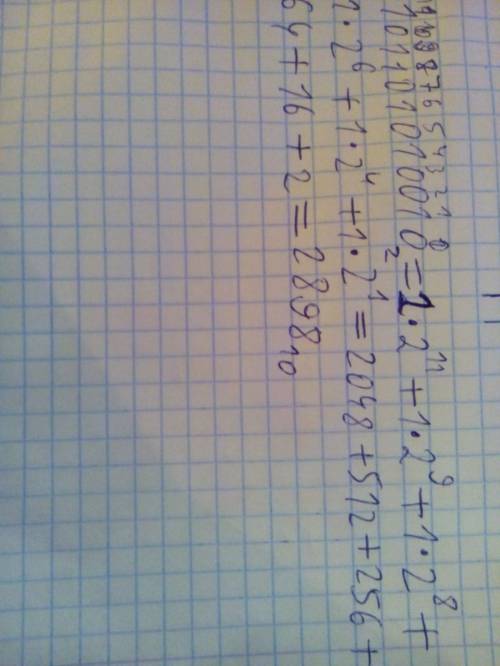 11 10 9 8 7 6 5 4 3 2 1 0
101101010010₂ = 1·2¹¹ + 1·2⁹ + 1·2⁸ +
1·2⁶ + 1·2⁴ + 1·2¹ = 2048 + 512 + 256 +
64 + 16 + 2 = 2898₁₀